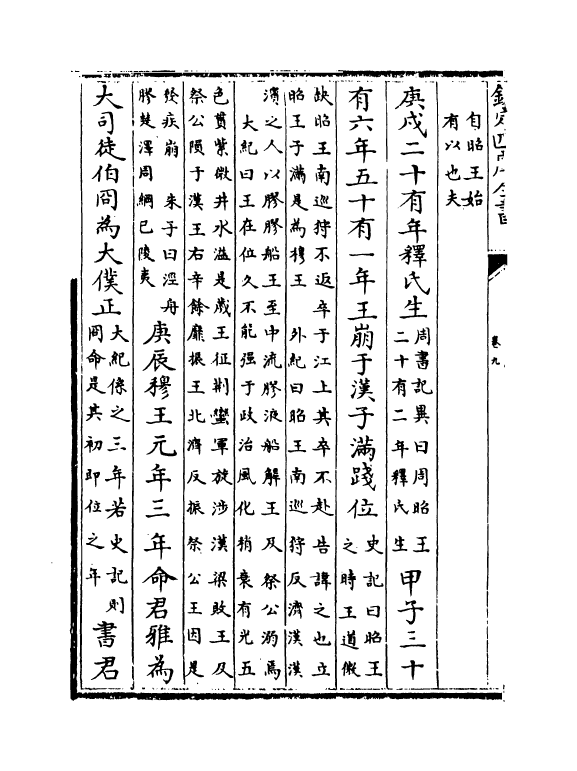 欽定四庫全書
卷九
自昭王始
有以也夫
庚戌二十有年釋氏生
周書記異曰周昭王
二十有二年釋氏生
甲子三十
有六年五十有一年王崩于漢子滿踐位
史記曰昭王
之時王道微
缺昭王南巡狩不返卒于江上其卒不赴告諱之也立
昭王子滿是為穆王　外紀曰昭王南巡狩反濟漢漢
濱之人以膠膠船王至中流膠液船解王及祭公溺焉
大紀曰王在位久不能强于政治風化稍衰有光五
色貫紫微井水溢是歲王征荆蠻軍旋涉漢梁敗王及
祭公隕于漢王右辛餘靡振王北濟反振祭公王因是
發疾崩　朱子曰涇舟
膠楚澤周綱已陵夷
庚辰穆王元年三年命君雅為
大司徒伯冏為大僕正
大紀係之三年若史記則
冏命是其初即位之年
書君